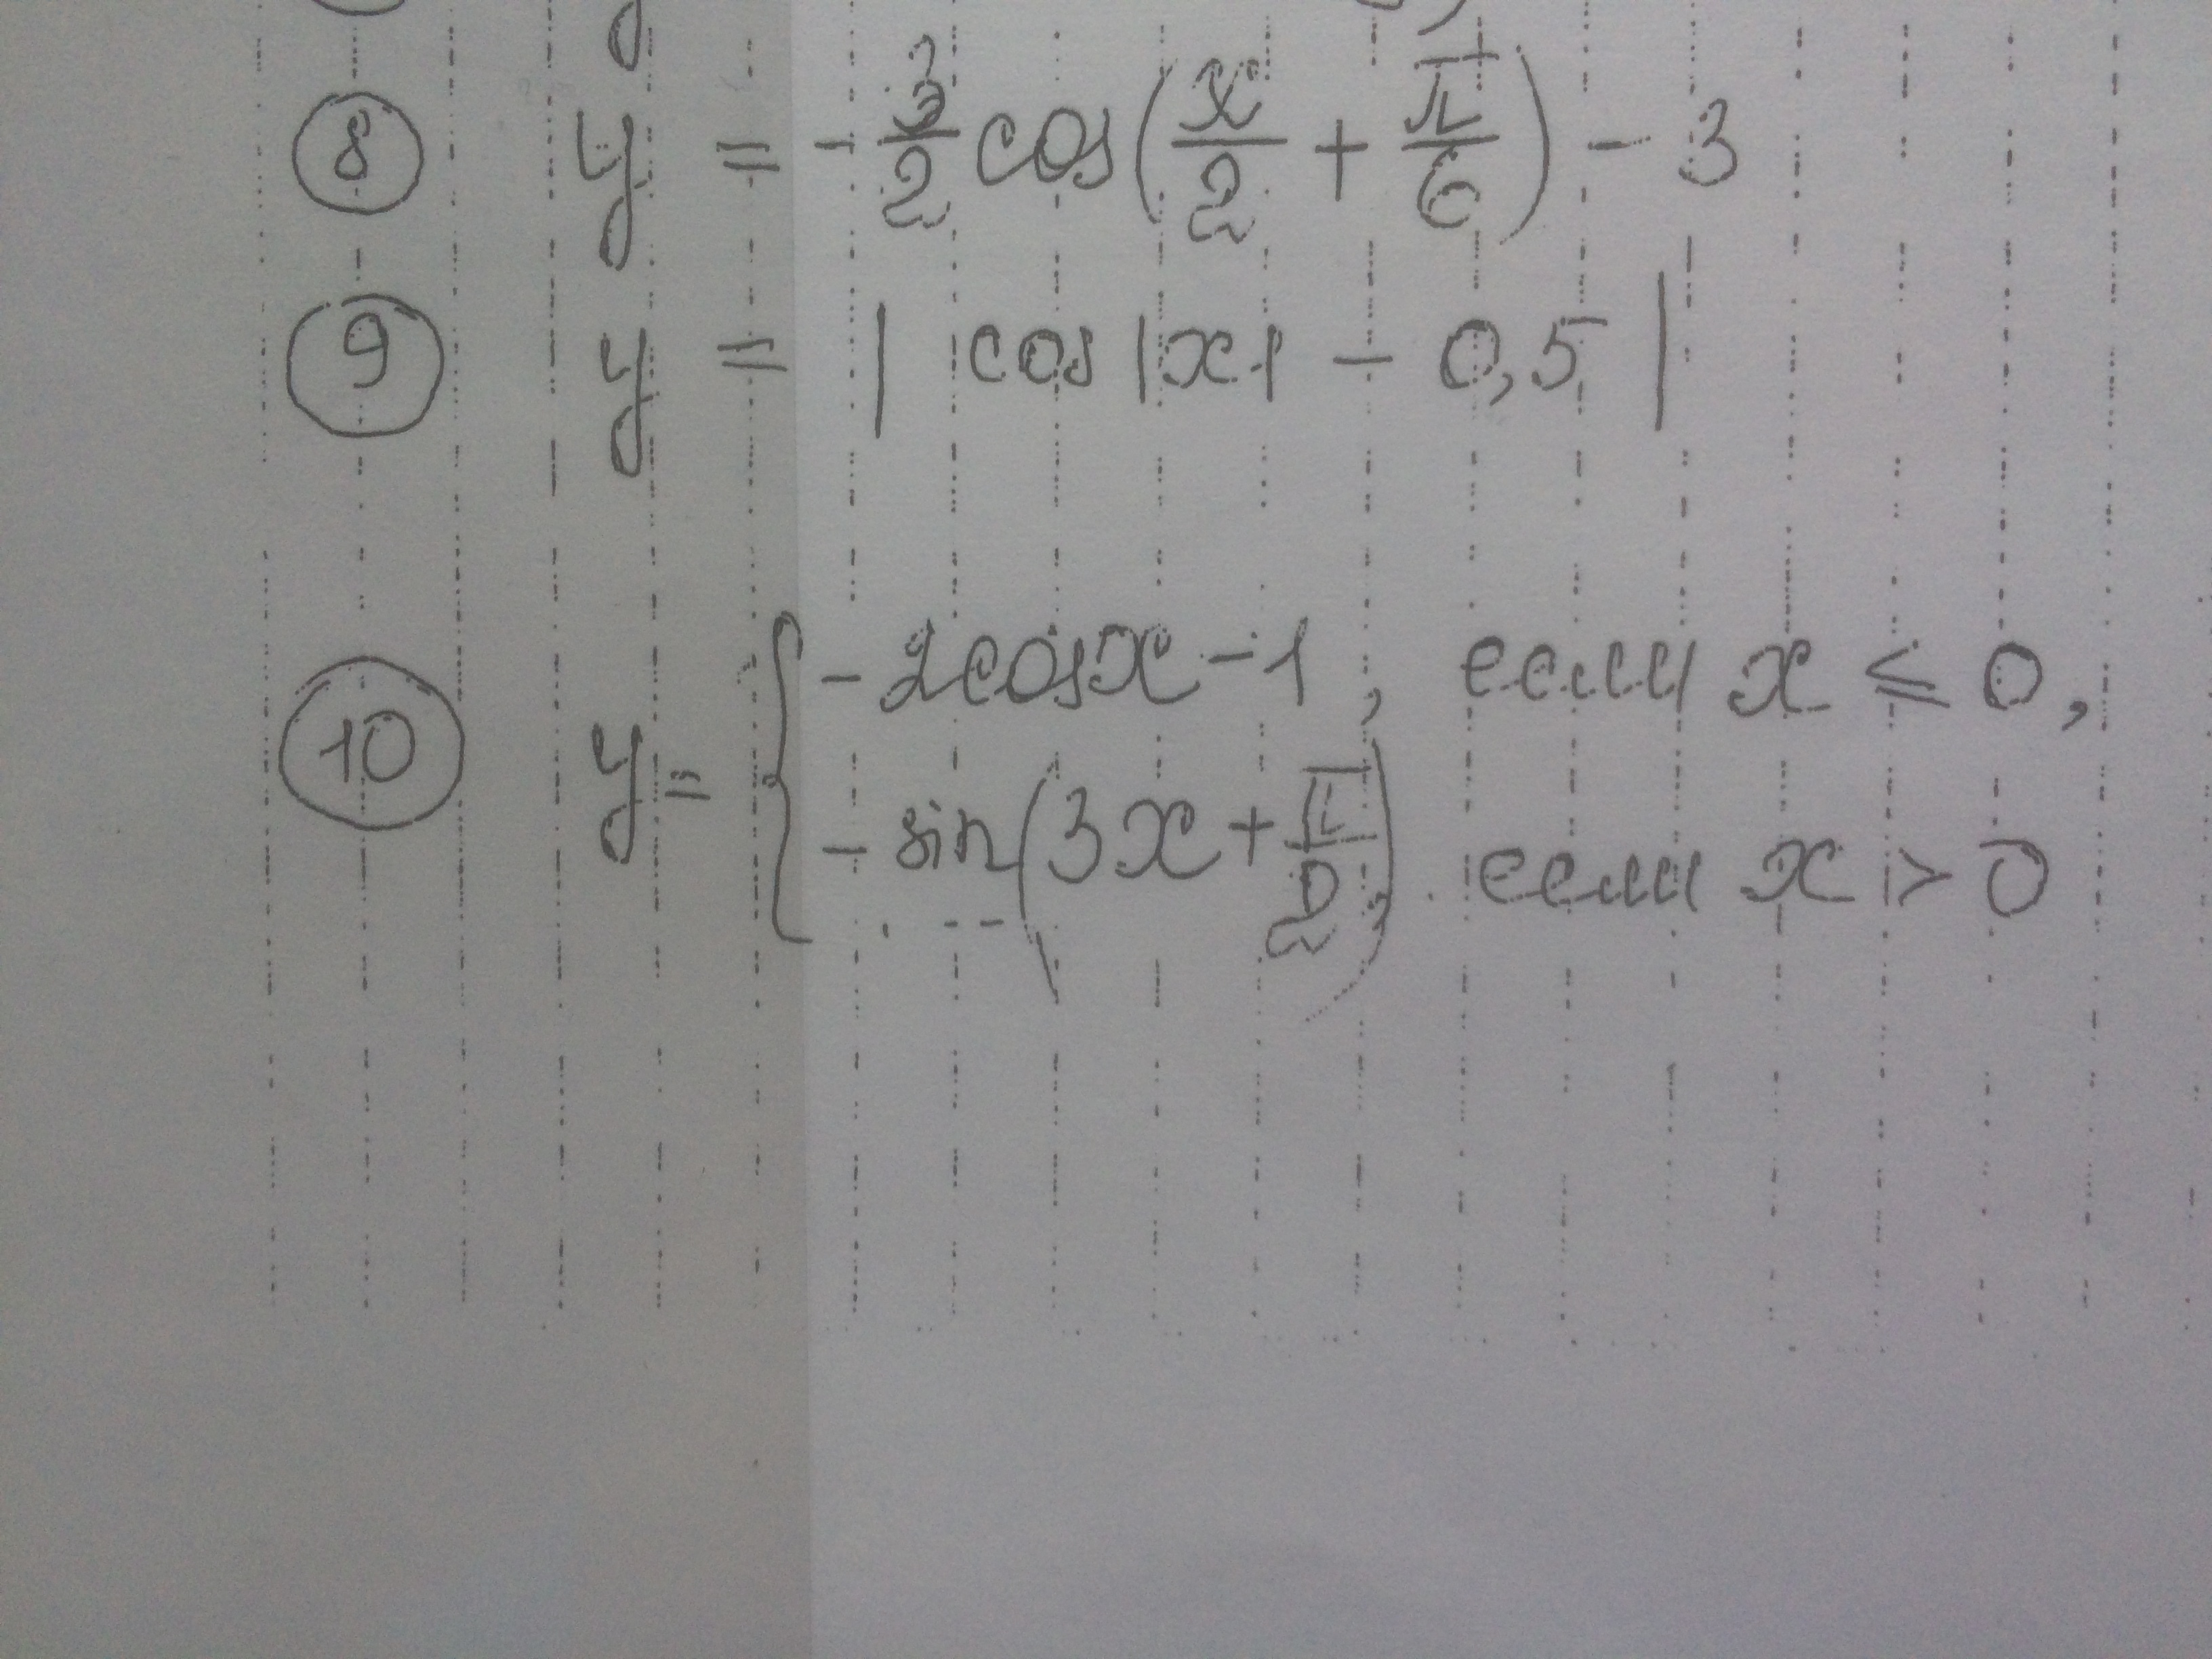 8 y = -3/2 cos(x/2 + π/6) - 3
9 y = | cos|x| - 0,5 |
10 y = { -2cosx - 1, если x ⩽ 0,
- sin(3x + π/2), если x > 0